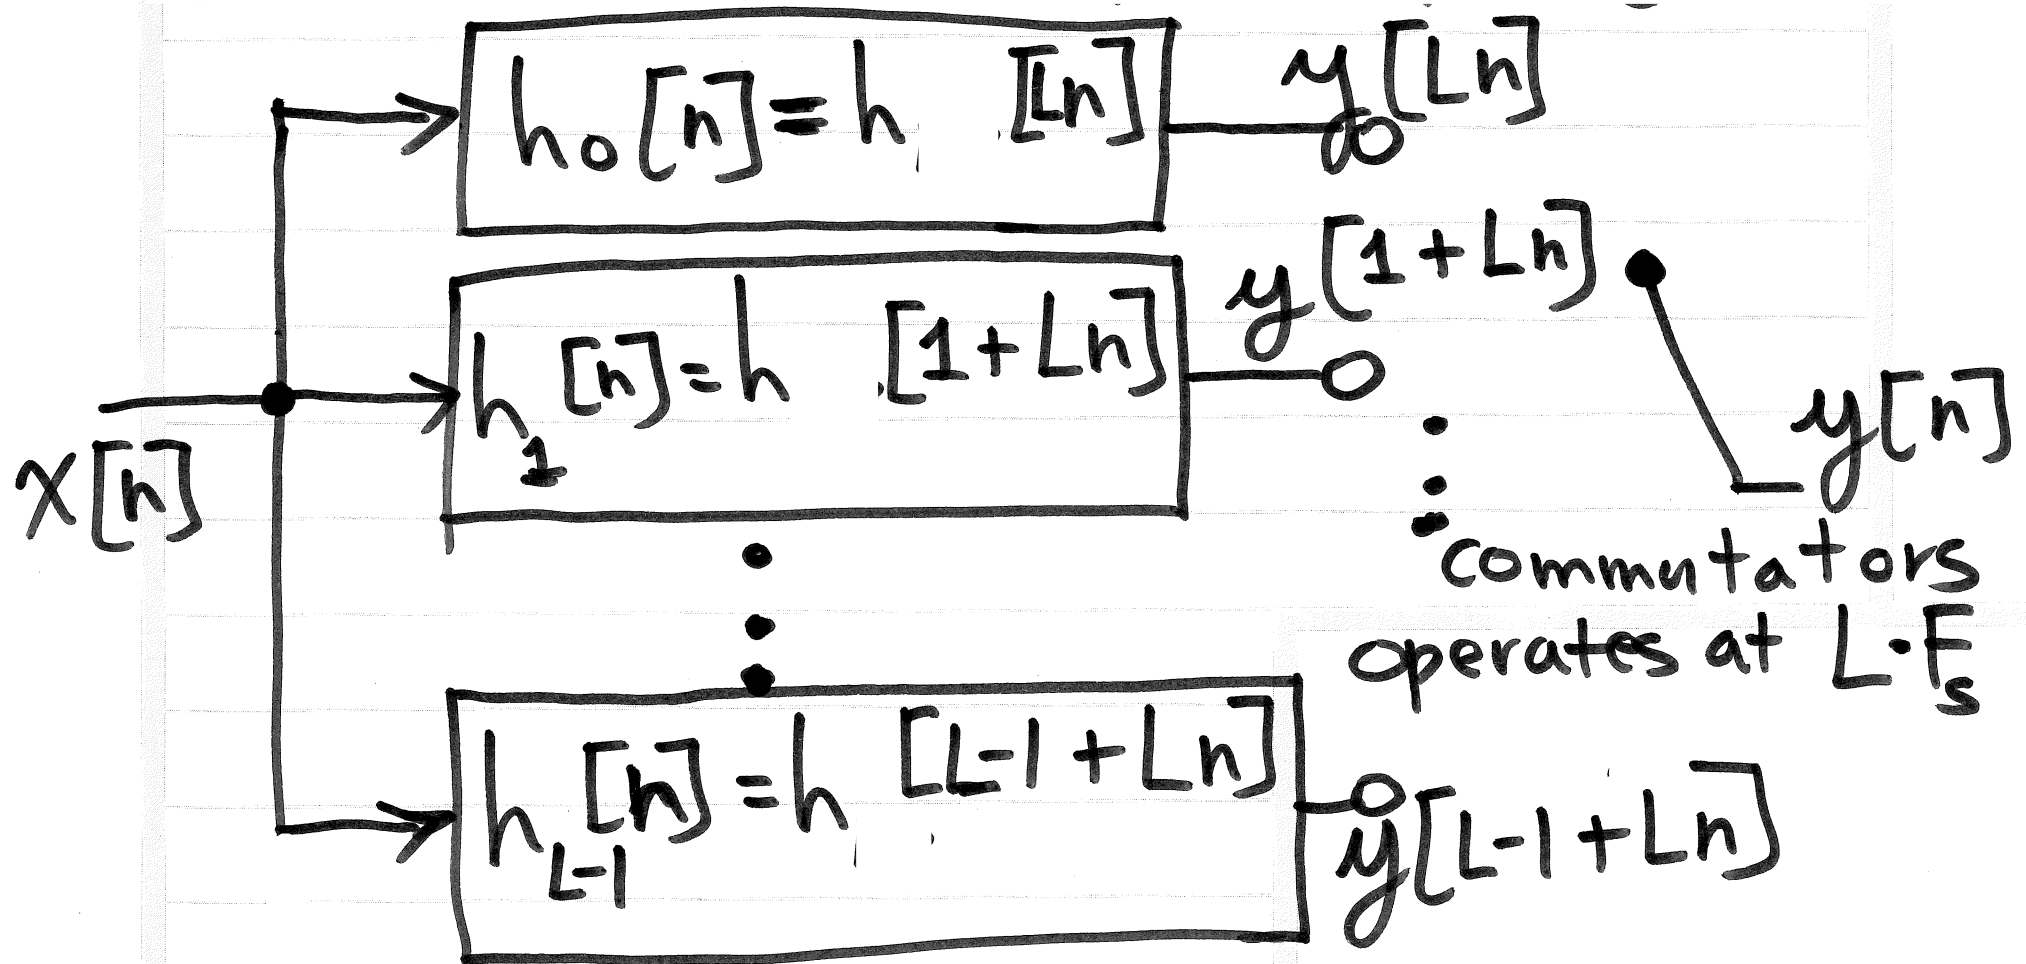 h₀[n]=h [Ln]
y[Ln]
h₁[n]=h [1+Ln]
y[1+Ln]
x[n]
y[n]
commutators
operates at L·Fₛ
h_{L-1}[n]=h [L-1+Ln]
y[L-1+Ln]